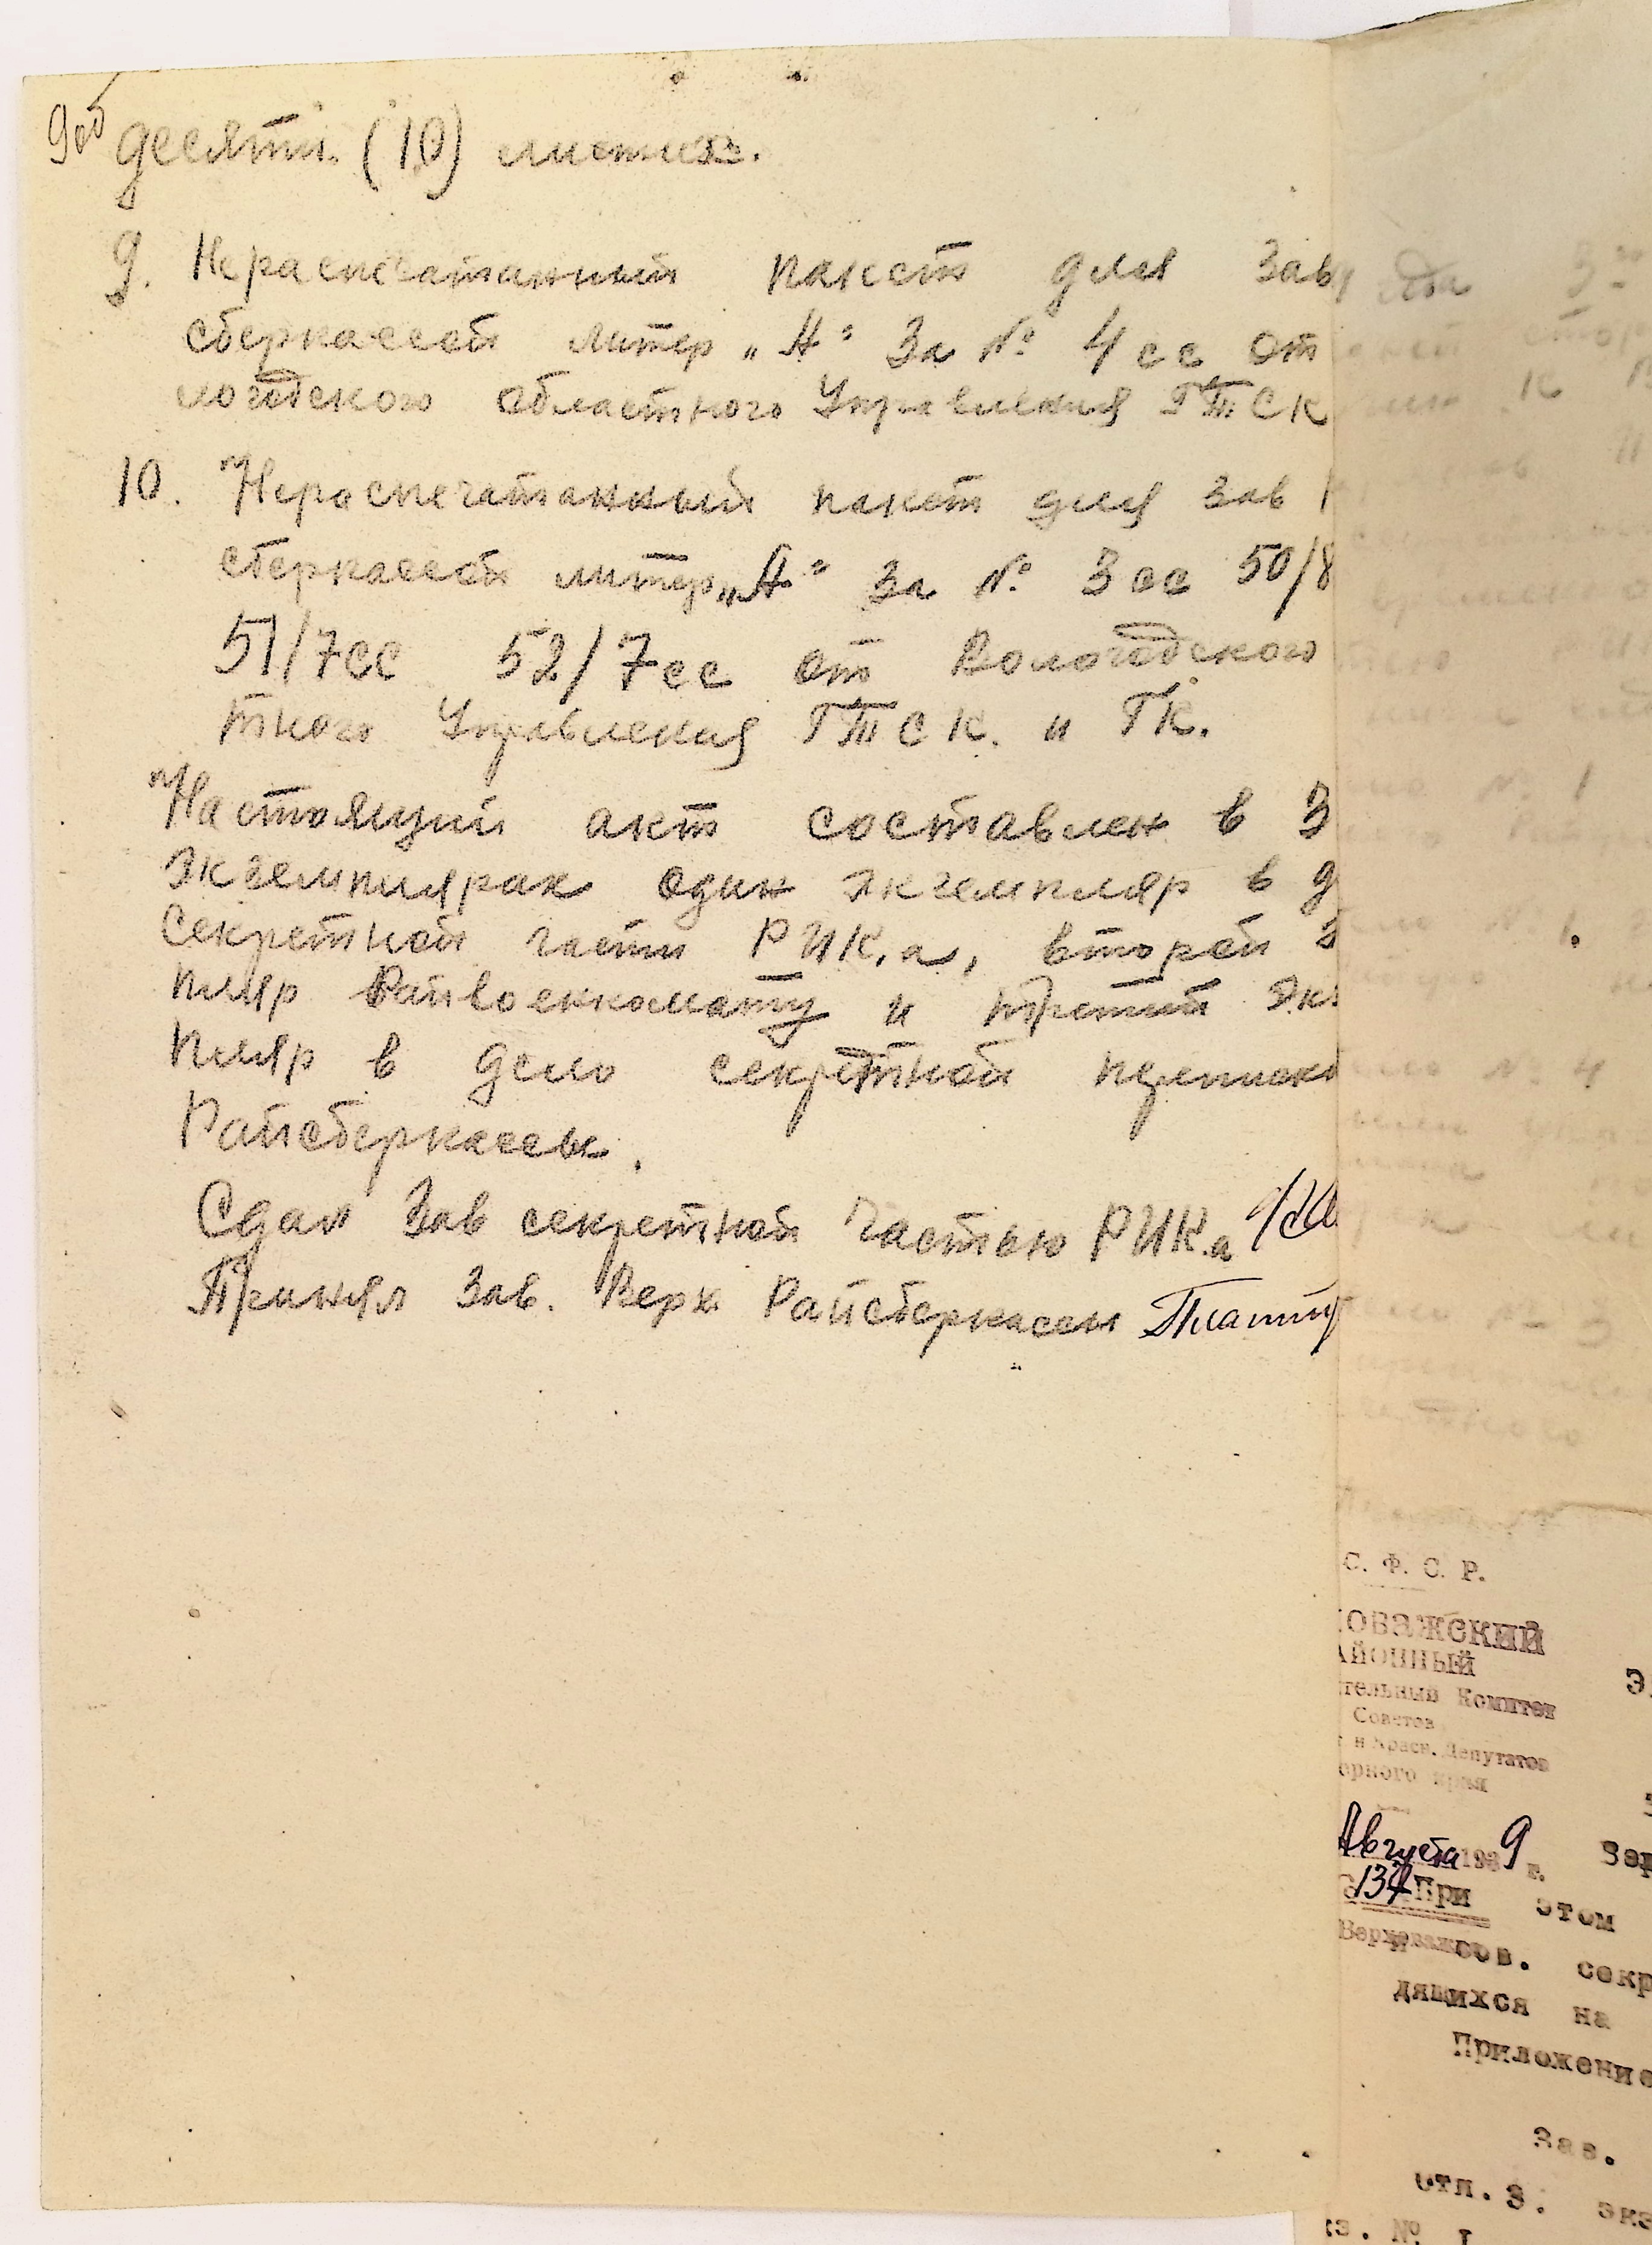 9об
десяти (10) листах.
9. Нераспечатанный пакет для Зав
сберкассой литер „А" За № 4 сс от
логодского областного Управления ГТСК
10. Нераспечатанный пакет для Зав
сберкассой литер „А" За № 3 сс 50/8
51/7сс 52/7сс от Вологодского
тного Управления ГТСК. и ГК.
Настоящий акт составлен в 3
экземплярах один экземпляр в д
секретной части РИК.а, второй э
пляр Райвоенкомату и третий экз
пляр в дело секретной переписк
Райсберкассы.
Сдал Зав секретной частью РИК.а
Принял Зав. Верх Райсберкассы
С. Ф. С. Р.
ОВАЖСКИЙ
АЙОННЫЙ
тельный Комитет
Советов
и Красн. Депутатов
ерного края
Августа 1939 г.
134 При этом
Верховажсов. секр
дящихся на
Приложение
Зав.
отп. 3. экз
кз. № 1